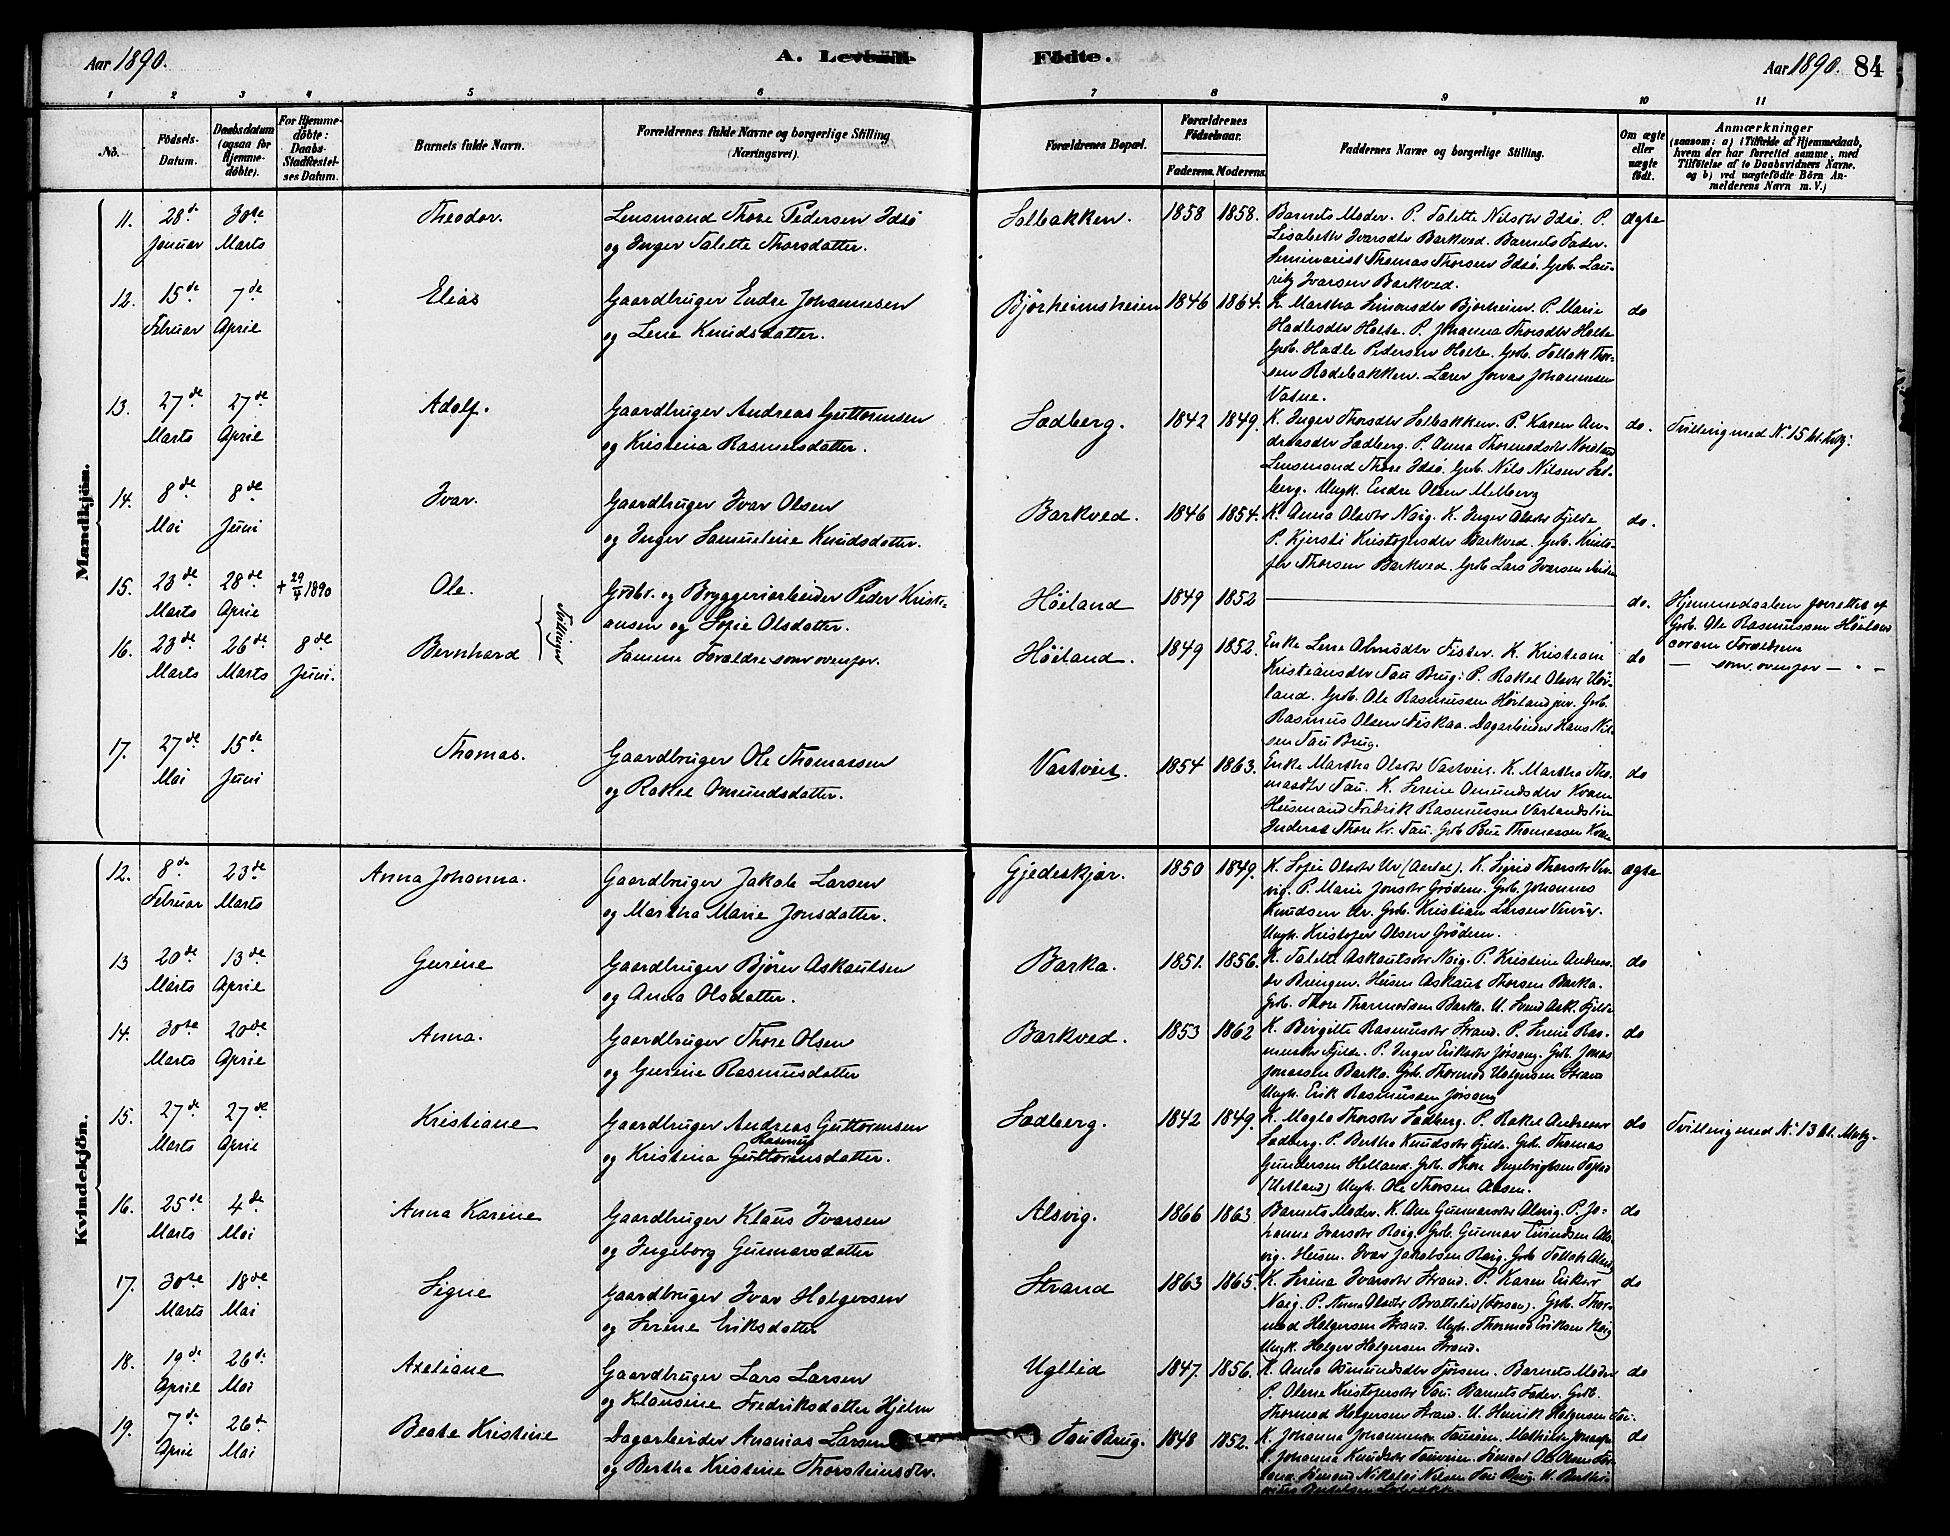 Aar 1890.
A. Levende
Födte.
Aar 1890. 84
1 2 3 4 5 6 7 8 9 10 11
No.
Födsels-Datum.
Daabsdatum (ogsaa for Hjemme-döbte).
For Hjemme-döbte: Daabs-Stadfæstel-ses Datum.
Barnets fulde Navn.
Forældrenes fulde Navne og borgerlige Stilling (Næringsvei).
Forældrenes Bopæl.
Forældrenes Födselsaar.
Faderens. Moderens.
Faddernes Navne og borgerlige Stilling.
Om ægte eller uægte födt.
Anmærkninger
(saasom: a) i Tilfælde af Hjemmedaab,
hvem der har forrettet samme, med
Tilföielse af to Daabsvidners Navne.
og b) ved uægtefödte Börn An-
melderens Navn m. V.)
Mandkjön.
11. 28de Januar 30te Marts Theodor. Lensmand Thore Pedersen Idsø
og Inger Talette Thorsdatter.
Solbakken. 1858 1858. Barnets Moder. P. Talette Nilsdtr Idsø. P.
Lisabeth Ivarsdtr Barkved. Barnets Fader.
Seminarist Thomas Thorsen Idsø. Grb. Lau-
ritz Ivarsen Barkved.
ægte
12. 15de Februar 7de April Elias Gaardbruger Endre Johannesen
og Lene Knudsdatter.
Bjørheimsheien 1846 1864. K. Martha Simonsdtr Bjørheim. P. Marie
Hadlesdtr Holte. P. Johanna Thorsdtr Holte
Grb. Hadle Pedersen Holte. Grb. Tollak Thor-
sen Rødebakken. Lærer Jonas Johannesen
Vatne.
do
13. 27de Marts 27de April Adolf. Gaardbruger Andreas Guttormsen
og Kristena Rasmusdatter.
Sadberg. 1842 1849. K. Inger Thorsdtr Solbakken. P. Karen An-
dreasdtr Sadberg. P. Anna Thormodsdtr Nordland
Lensmand Thore Idsø. Grb. Nils Nilsen Sad-
berg. Ungk. Endre Olsen Melberg
do. Tvilling med N. 15 bl. Kvkj.
14. 8de Mai 8de Juni Ivar. Gaardbruger Ivar Olsen
og Inger Samueline Knudsdatter.
Barkved. 1846 1854. K. Anna Olsdtr Naig. K. Inger Olsdtr Fjelde
P. Kjersti Kristofersdtr Barkved. Grb. Kristo-
fer Thorsen Barkved. Grb Lars Ivarsen
do.
15. 23de Marts 28de April + 29/4 1890 Ole. Grdbr. og Bryggeriarbeider Peder Kristi-
ansen og Sofie Olsdatter.
Høiland 1849 1852 do. Hjemmedaaben forrettet af
Grb. Ole Rasmussen Høiland
coram Forældrene
Tvillinger
16. 23de Marts 26de Marts 8de Juni. Bernhard Samme Forældre som ovenfor.
Høiland. 1849 1852. Enke Lene Fister. K. Kristiane
Kristiansdtr Tau Brug. P. Rakel Olsdtr Høi-
land. Grb. Ole Rasmussen Høiland jnr. Grb.
Rasmus Olsen Fiskaa. Dagarbeider Hans Nil-
sen Tau Brug.
do — som ovenfor —
17. 27de Mai 15de Juni Thomas. Gaardbruger Ole Thomassen
og Rakel Omundsdatter.
Vastveit. 1854 1863. Enke Martha Olsdtr Vastveit. K. Martha Tho-
masdtr Tau. K. Serine Omundsdtr Kvam
Husmand Fredrik Rasmussen
Inderst Thore Kr. Tau. Grb Thomassen
do
Kvindekjön.
12. 8de Februar 23de Marts Anna Johanna. Gaardbruger Jakob Larsen
og Martha Marie Jonsdatter.
Gjedeskjær. 1850 1849. K. Sofie Olsdtr Ur (Aardal). K. Sigrid Thorsdtr Ver-
vig. P. Marie Jonsdtr Grødem. Grb. Johannes
Knudsen Ur. Grb. Kristian Larsen Vervig.
Ungk. Kristofer Olsen Grødem.
ægte
13 20de Marts 13de April Gurine Gaardbruger Bjørn Askautsen
og Anna Olsdatter.
Barka. 1851. 1856. K. Talette Askautsdtr Naig. P. Kristine Andreas-
dtr Bringen. Husm Askaut Thorsen Barka.
Grb. Thore Thormodsen Barka. U. Svend Ask. Fjelde
do
14. 30te Marts 20de April Anna. Gaardbruger Thore Olsen
og Gurine Rasmusdatter
Barkved. 1853 1862 K. Birgitte Rasmusdtr Strand. P. Serine Ras-
musdtr Fjelde. P. Inger Eriksdtr Jøsang. Grb. Jonas
Jonassen Barka. Grb. Thormod Holgersen Strand
Ungk. Erik Rasmussen Jøsang
do
15. 27de Marts 27de April Kristiane Gaardbruger Andreas Guttormsen
Rasmus
og Kristena Guttormsdatter.
Sadberg. 1842 1849. K. Magla Thorsdtr Sadberg. P. Rakel Andreasdr
Sadberg. P. Bertha Knudsdtr Fjelde. Grb. Thomas
Gundersen Helland. Grb. Thore Ingebrigtsen
Ungk. Ole Thorsen Aasen.
do Tvilling med N. 13 bl. Mankj.
16. 25de Marts 4de Mai Anna Karine Gaardbruger Klaus Ivarsen
og Ingeborg Gunnarsdatter
Alsvig. 1866 1863 Barnets Moder. K. Ane Gunnarsdtr Alsvig. P. Jo-
hanne Ivarsdtr Raig. Grb. Gunnar Eivindsen Als-
vig. Husm. Ivar Jakobsen Raig. Grb. Tollak Alsvig
do
17. 30te Marts 18de Mai Signe Gaardbruger Ivar Holgersen
og Serine Eriksdatter
Strand 1863 1865. K. Serena Ivarsdtr Strand. P. Karen Eriksdr
Naig. P. Anna Olsdtr Brattelid (Forsan). Grb. Thor-
mod Holgersen Strand. Ungk. Thormod Eriksen Naig
Ungk. Holger Holgersen Strand.
do
18. 19de April 26de Mai Axeliane Gaardbruger Lars Larsen
og Klausine Fredriksdatter Hjelm
Uglelid 1847. 1856. K. Anna Asmundsdtr Fjørsen. Barnets Moder
P. Olene Kristofersdtr Tau. Barnets Fader. Grb.
Thormod Holgersen Strand. U. Henrik Holgersen Tau.
do
19. 7de April 26de Mai Beate Kristine Dagarbeider Ananias Larsen
og Bertha Kristine Thorsteinsdtr.
Tau Brug. 1848 1852. K. Johanna Johannesdtr Mathilde
P. Johanna Knudsdtr Ole Olsen
Nikolai Nilsen Tau Brug.
do